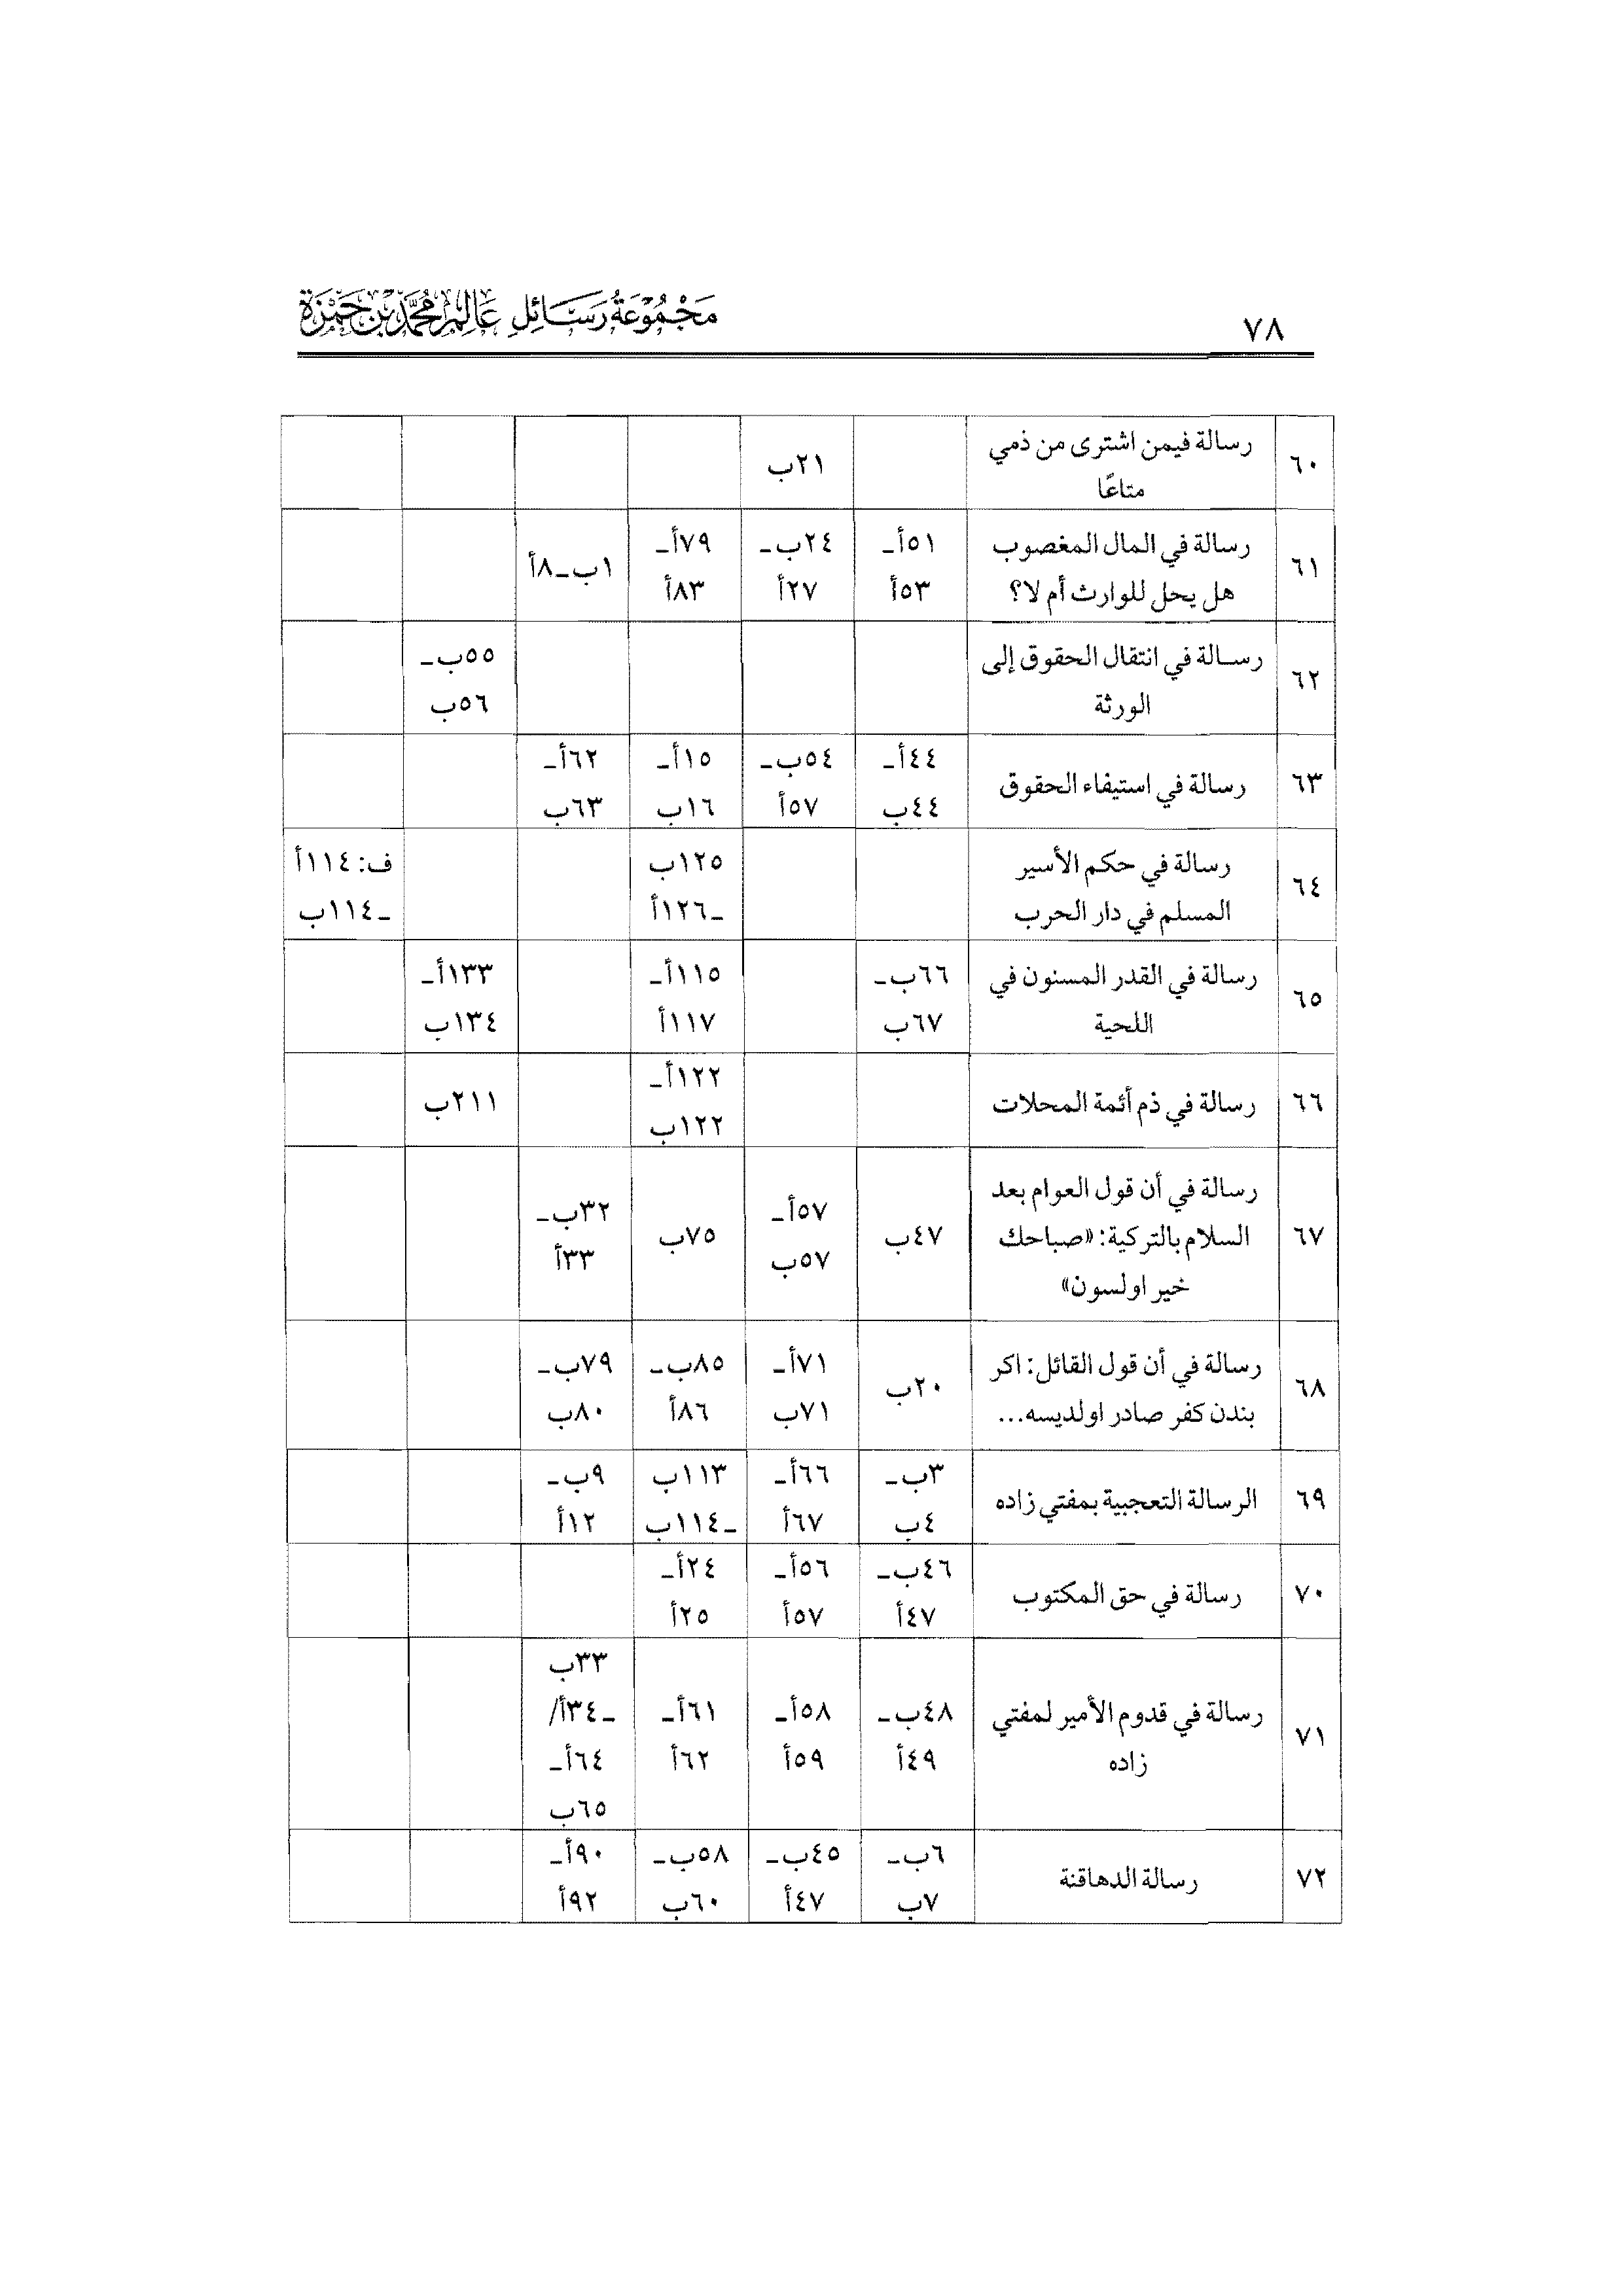 ٧٨
مَجْمُوْعَةُ رَسَائِلِ عَالِم مُحَمَّد بْن حَمْزَة
٦٠ رسالة فيمن اشترى من ذمي
متاعًا
٢١ب
٦١ رسالة في المال المغصوب
هل يحل للوارث أم لا؟
٥١أ ـ
٥٣أ
٢٤ب ـ
٢٧أ
٧٩أ ـ
٨٣أ
١ب ـ ٨أ
٦٢ رسالة في انتقال الحقوق إلى
الورثة
٥٥ب ـ
٥٦ب
٦٣ رسالة في استيفاء الحقوق
٤٤أ ـ
٤٤ب
٥٤ب ـ
٥٧أ
١٥أ ـ
١٦ب
٦٢أ ـ
٦٣ب
٦٤ رسالة في حكم الأسير
المسلم في دار الحرب
١٢٥ب
ـ ١٢٦أ
ف: ١١٤أ
ـ ١١٤ب
٦٥ رسالة في القدر المسنون في
اللحية
٦٦ب ـ
٦٧ب
١١٥أ ـ
١١٧أ
١٣٣أ ـ
١٣٤ب
٦٦ رسالة في ذم أئمة المحلات
١٢٢أ ـ
١٢٢ب
٢١١ب
٦٧ رسالة في أن قول العوام بعد
السلام بالتركية: «صباحك
خير اولسون»
٤٧ب
٥٧أ ـ
٥٧ب
٧٥ب
٣٢ب ـ
٣٣أ
٦٨ رسالة في أن قول القائل: اكر
بندن كفر صادر اولديسه...
٢٠ب
٧١أ ـ
٧١ب
٨٥ب ـ
٨٦أ
٧٩ب ـ
٨٠ب
٦٩ الرسالة التعجبية بمفتي زاده
٣ب ـ
٤ب
٦٦أ ـ
٦٧أ
١١٣ب
ـ ١١٤ب
٩ب ـ
١٢أ
٧٠ رسالة في حق المكتوب
٤٦ب ـ
٤٧أ
٥٦أ ـ
٥٧أ
٢٤أ ـ
٢٥أ
٧١ رسالة في قدوم الأمير لمفتي
زاده
٤٨ب ـ
٤٩أ
٥٨أ ـ
٥٩أ
٦١أ ـ
٦٢أ
٣٣ب
ـ ٣٤أ/
٦٤أ ـ
٦٥ب
٧٢ رسالة الدهاقنة
٦ب ـ
٧ب
٤٥ب ـ
٤٧أ
٥٨ب ـ
٦٠ب
٩٠أ ـ
٩٢أ